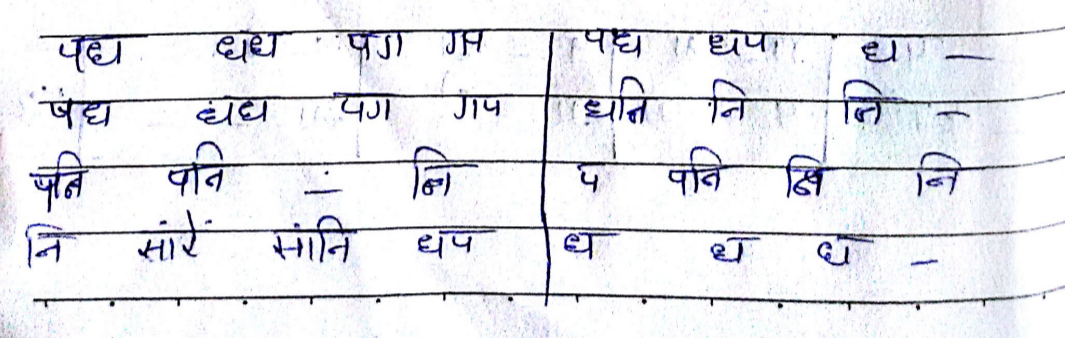 पध धध पग गप | पध धप ध –
पध धध पग गप | धनि नि नि –
पनि पनि – नि | प पनि नि नि
नि सांरें सांनि धप | ध ध ध –